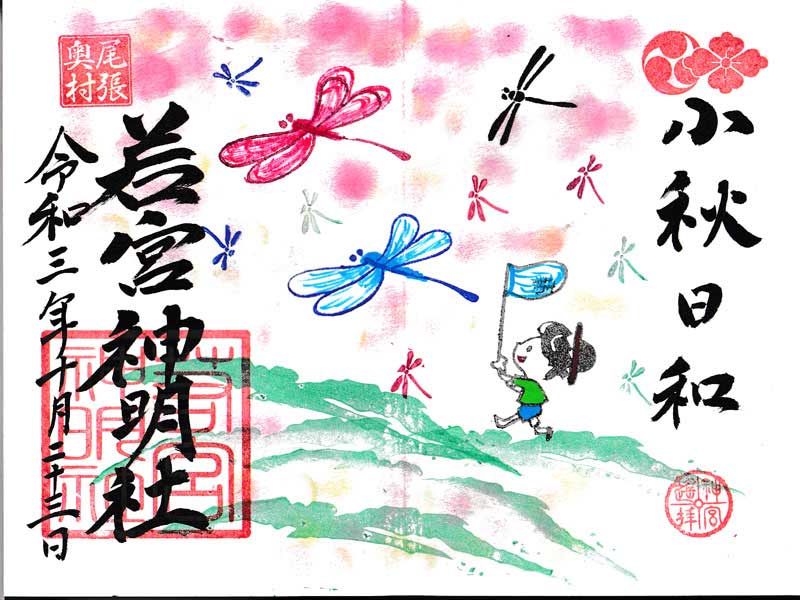 小秋日和
神宮
遥拝
尾張
奥村
若宮神明社
令和三年十月二十三日
若宮
神明社